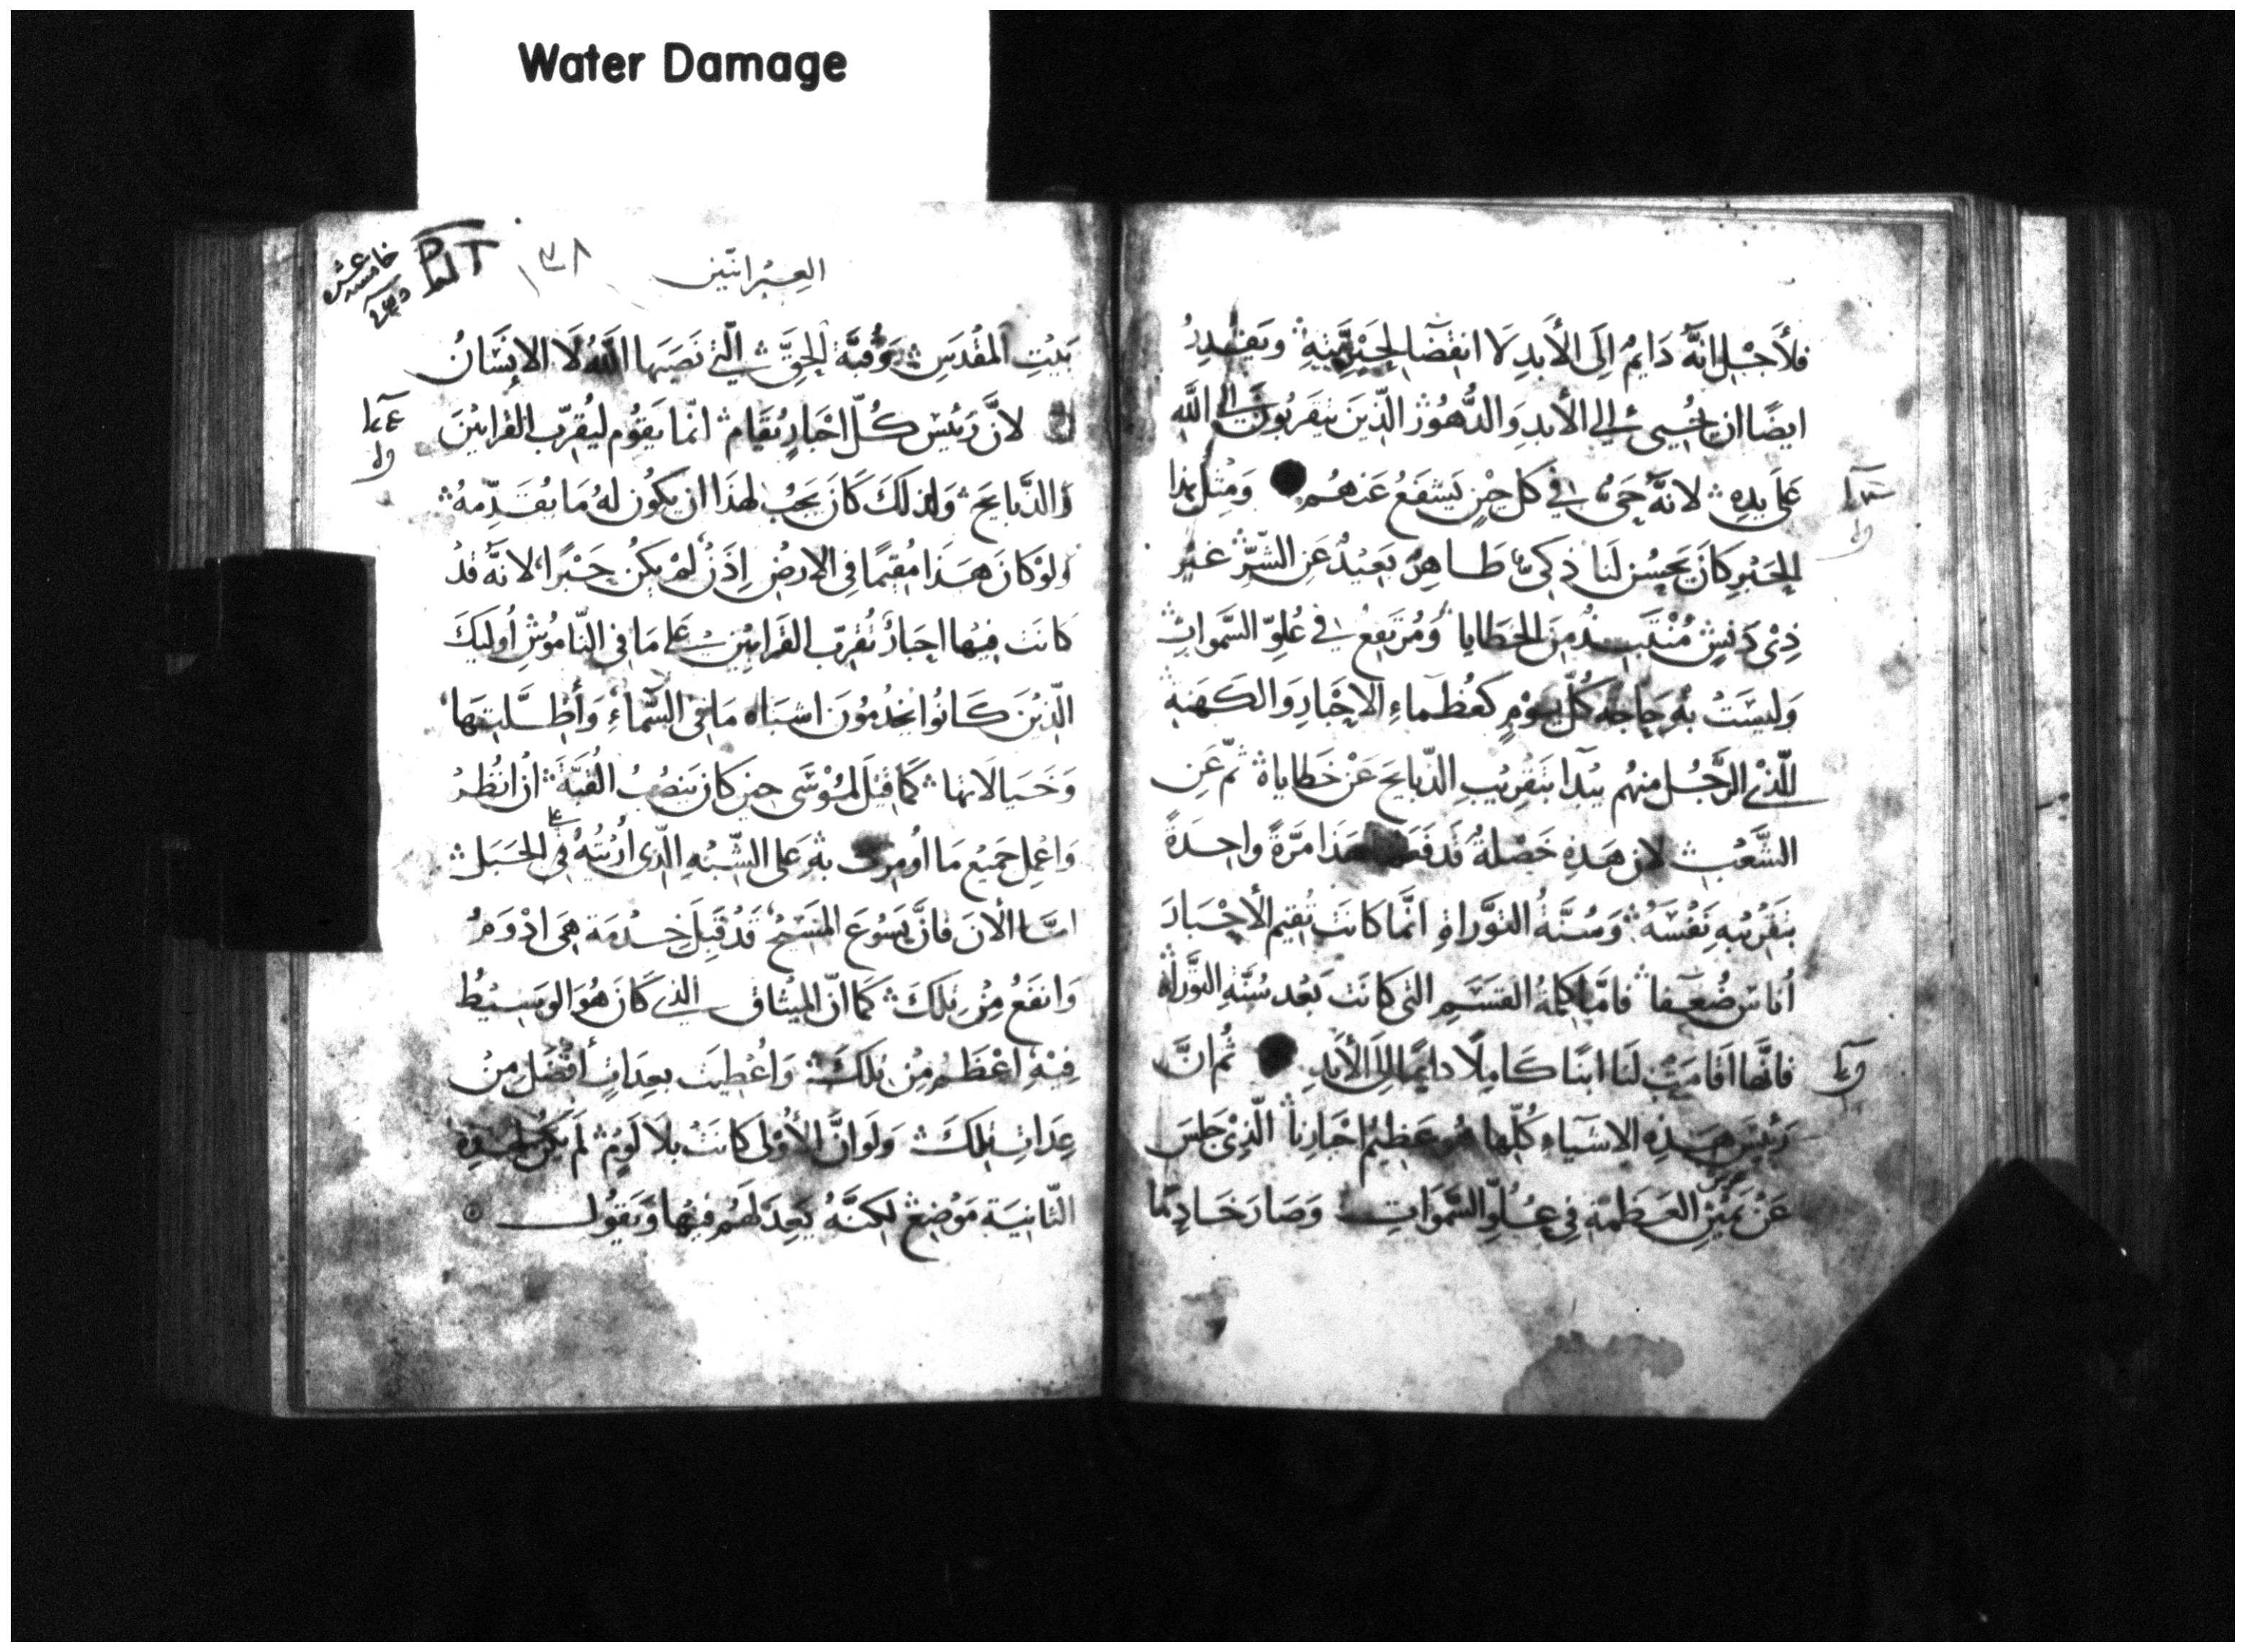 Water Damage
فلأجل انَّه دَايمُ الَى الأبدِ لا انقضَا لِحَبْرِيَّتِهِ وَيَقْدِرُ
ايضًا ان يُحْيي الي الأبدِ وَالدُّهُورْ الّذِينَ يتَقَربُونَ الى اللّه
عَلَى يَدِهِ لانهُ حَىٌ في كلِ حِيْنٍ يَشفَعُ عَنهُم وَمثل هذا
الحَبْرِ كانَ يَحْسُن لَنا ذكى طَاهِرْ بَعيْدٌ عَنِ الشَّرِّ غير
ذِىْ دَنسٍ مِنَ الخطَايا وَمُرتَفِعْ في عُلوِّ السَّموَات
وَليسَتْ بهِ حَاجَة كُلّ يَوْمٍ كعُظماءِ الاحْبارِ وَالكَهَنةِ
الّذي الرَّجُل منهُم يَبْدا بتَقرِيْبِ الذّبايحِ عَنْ خَطاياهُ ثمّ عَنِ
الشَّعْبِ لان هَذِهِ خَصْلةٌ قَد هَذا مَرَّةً واحِدَةً
بتَقْرِيْبهِ نَفْسَهُ وَسُنَّةُ التوْرَاةِ انّما كانَت تُقِيم الأحْبَارَ
أناس ضُعَفا فامَّا كلِمَةُ القسَمِ التى كانَت بَعْد سُنَّةِ التوْرَاة
فانَّها اقامَتْ لَنا ابنًا كامِلًا دايمًا الَى الأبَدِ ثُم انَّ
رَئيسَ هَذِهِ الاشيَاءِ كُلّها هُو عَظِيْمُ احْبَارِنا الّذِىْ جَلسَ
عَنْ يَمِيْنِ العَظمَةِ فِي عُلوِّ السَّموَاتِ وَصَارَ خَادِمًا
العِبْرانيّين
١٣٨
بَيْتِ المقْدَسِ وَقُبَّة الحِقِّ الّتي نَصَبَها اللّهُ لَا الانِسَانُ
لأنَّ رَئيْس كُلّ احْبَارٍ يُقَام انّما يَقوُم ليُقرّب القرابيْنَ
وَالذّبايحَ وَلِذلكَ كَانَ يَجبُ لهذَا ان يكُون لهُ مَا يُقَدِّمهُ
وَلوْ كانَ هَذَا مُقيْمًا فِي الارْضِ اِذَنْ لَمْ يكُن حَبْرًا لانهُ قدْ
كانَت فيْها احبَارْ تُقرّب القَرابيْن عَلى مَا في النّامُوْسِ أوليكَ
الّذِيْنَ كانُوا يَخْدمُوْن اشبَاه مَا في السّماءِ وَأظِلَّتها
وَخَيَالاتها كمَا قيْلَ لمُوْسَى حيْن كان يَنصُبُ القُبَّةَ أنْ انظُر
وَاعْمِل جَميْع مَا أومِرت بهِ عَلى الشّبْهِ الّذِى أرِيْتهُ في الجَبَل
امّا الأنَ فانَّ يَسُوعَ المَسِيْحَ قَدْ قَبِلَ خِدْمَة هِىَ ادْوَمُ
وَانفَعُ مِنْ تِلكَ كمَا انّ الميْثاق الذي كَانَ هُوَ الوَسِيْطُ
فِيْهِ اعْظَمُ مِنْ تلكَ وَأعْطِيَت بعِدَاتٍ أفْضَل مِنْ
عِدَاتِ تلكَ وَلو انَّ الأوْلى كانَتْ بلَا لَوْمٍ لَم يَكُن لهذِهِ
الثّانيَة مَوْضِعْ لكنَّهُ يَعِد لَهُم فيْها وَيَقول